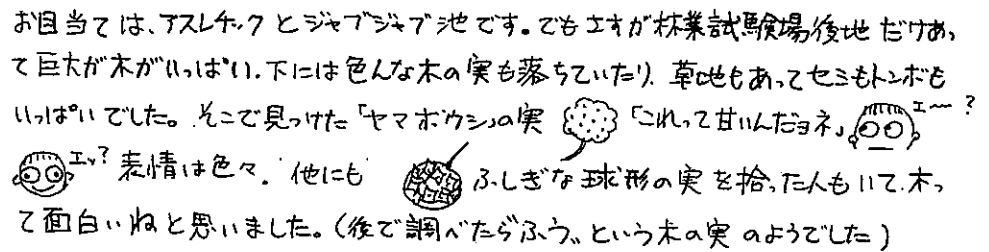 お目当ては、アスレチックとジャブジャブ池です。でもさすが林業試験場後地だけあっ
て巨大が木がいっぱい。下には色んな木の実も落ちていたり、草地もあってセミもトンボも
いっぱいでした。そこで見つけた「ヤマボウシ」の実「これって甘いんだョネ」エ〜?
エッ?表情は色々。他にもふしぎな球形の実を拾った人もいて、木っ
て面白いねと思いました。(後で調べたらふう〟という木の実のようでした)